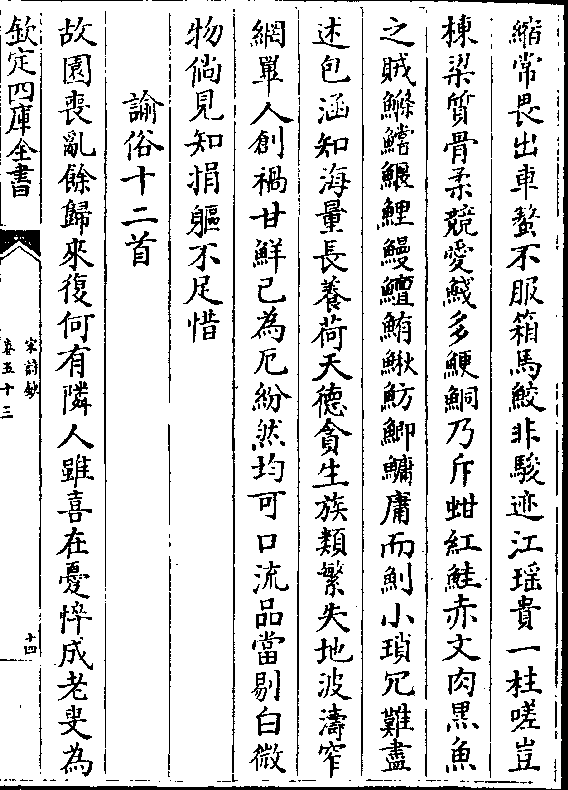 縮常畏出車螯不服箱馬鮫非駿迹江瑶貴一柱嗟豈
棟梁質骨柔競愛䱠多鯾鮦乃斥蚶紅鮭赤文肉黒魚
之賊鰷鰭鰋鯉鰻鱣鮪鰍魴鯽鱅庸而魝小瑣冗難盡
述包涵知海量長養荷天德貪生族類繁失地波濤窄
網單人創禍甘鮮己為厄紛然均可口流品當剔白微
物倘見知捐軀不足惜
諭俗十二首
故園喪亂餘歸來復何有隣人雖喜在憂悴成老叟為
欽定四庫全書
宋詩鈔
卷五十三
十四